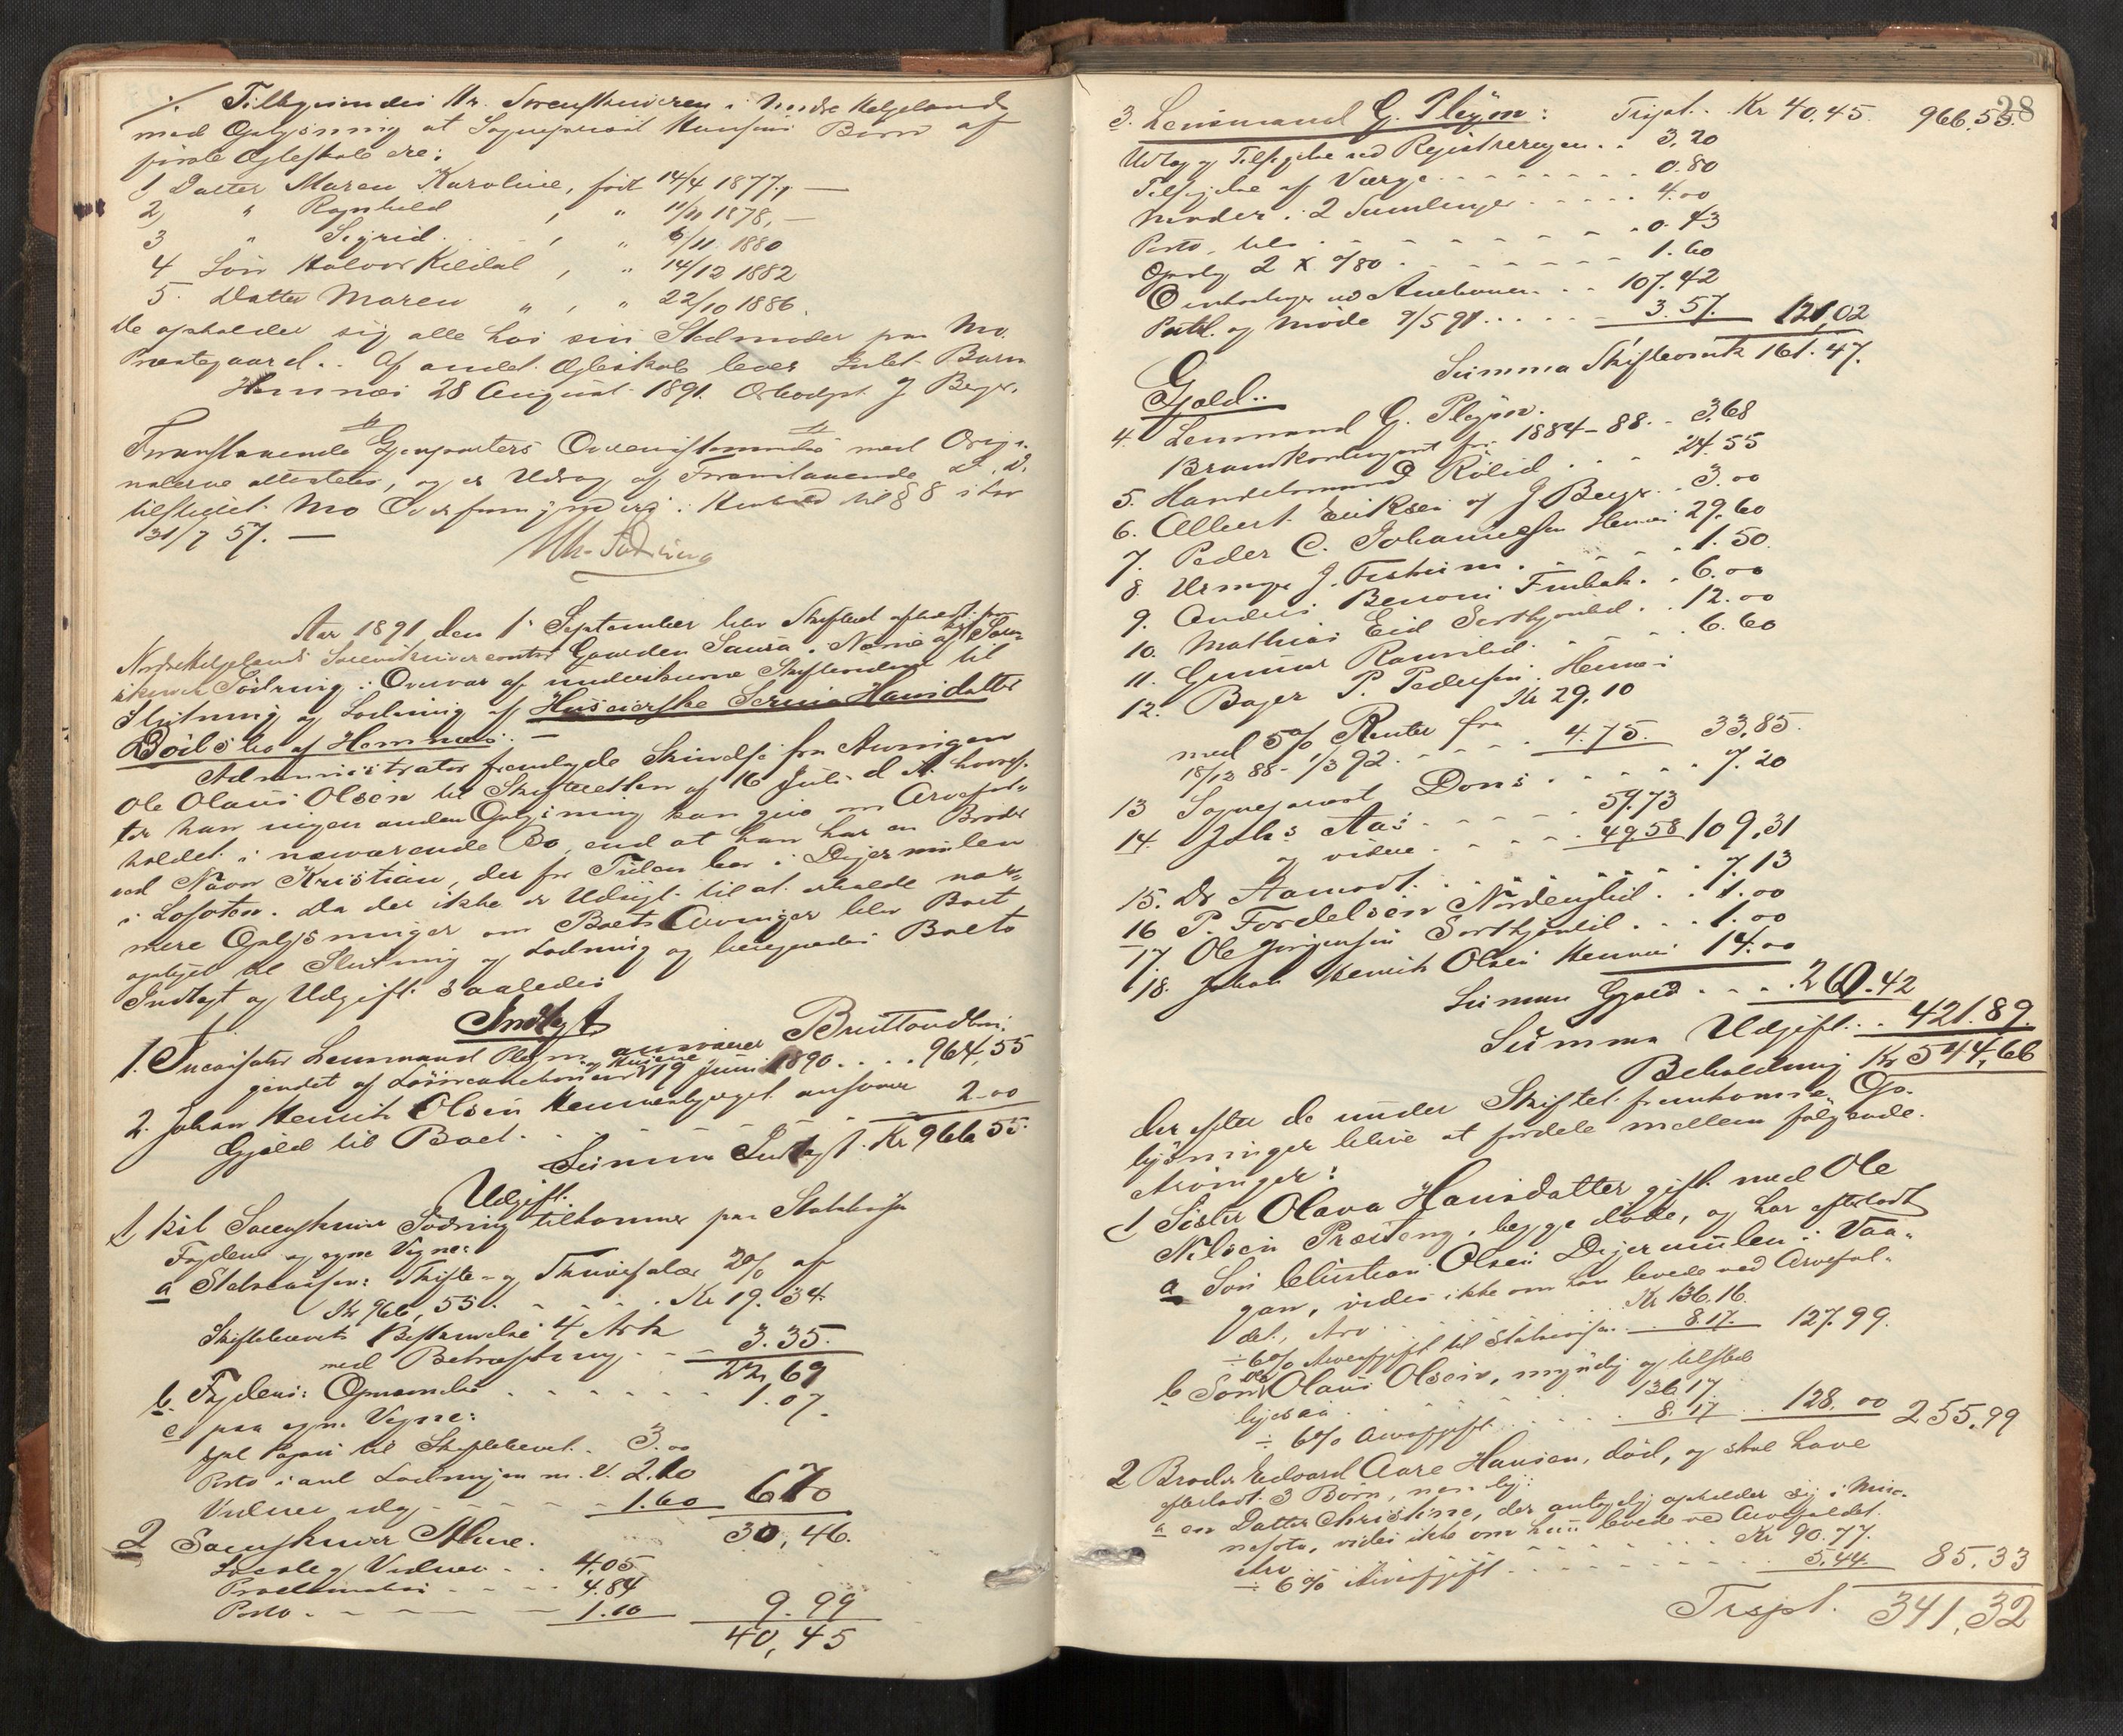 ./. Tilbagesendes Hr. Sorenskriveren i Nordre Helgeland
med Oplysning at Sogneprest Hansens Børn af
første Ægteskab ere:
1 Datter Maren Karoline, født 14/4 1877, —
2, " Ragnhild , " 11/11 1878, —
3 " Sigrid , " 6/11 1880
4 Søn Halvor Kildal , " 14/12 1882
5. Datter Maren " , " 22/10 1886.
De opholder sig alle hos sin Stedmoder paa Mo
Præstegaard. Af andet Ægteskab lever Intet Barn
Hemnæs 28 August 1891. J Berger.
Foranstaaende Gjenparters Overensstemmelse med Origi-
nalerne attesteres, og er Udtog af Foranstaaende d. D.
tilstillet Mo Overformynderi i Henhold til § 8 i Lov
31/7 57. —
Aar 1891 den 1 September blev Skifteret afholdt paa
Nordre Helgelands Sorenskriverkontor Gaarden Saura i Næsne af kst Soren-
skriver Södring i Overvær af underskrevne Skiftevidner til
Slutning og Lodning af Huseierske Serina Hansdatter
Böilsbo af Hemnæs. —
Administrator fremlagde Skrivelse fra Arvingen
Ole Olaus Olsen til Skifteretten af 16 Juli d. A. hvoref-
ter han ingen anden Oplysning kan give om Arvefor-
holdet i nærværende Bo, end at han har en Broder
ved Navn Kristian, der for Tiden bor i Digermulen
i Lofoten. Da der ikke er Udsigt til at erholde nær-
mere Oplysninger om Boets Arvinger blev Boet
optaget til Slutning og Lodning og beregnedes Boets
Indtægt og Udgift saaledes
Indtægt
1. Incassator Lensmand Pleym ansvarer Bruttoudbrin-
gendet af Løsøreauctionen 19 Juni 1890 .... 964,55
2. Johan Henrik Olsen Hemnesberget ansvarer
Gjæld til Boet . . . 2.00
Summa Indtægt Kr 966 55.
Udgift.
1 kst Sorenskriver Södring tilkommer paa Statskassens
Fogdens og egne Vegne:
a Statskassen: Skifte- og Skriversalær 2% af
Kr 966,55 . . . . Kr 19.34
Skiftebrevets Beskrivelse 4 Ark
med Bekræftning . . . 3.35.
22,69
b. Fogdens: Opnævnelse . . . . . 1.07.
c paa egne Vegne:
stpl Papir til Skiftebrevet . 3.00
Porto i anl Lodningen m. V. 2.10
Vidner idag . . . . . 1.60 670
30,46.
2 Sorenskriver Alme.
Locale og Vidner . . 4,05
Proclamation . . . . 4.84
Porto . . . . . . 1.10 9.99
40,45
28
3. Lensmand G. Pleym: Trspt. . Kr 40.45. 966.55
Udlæg og Tilsigelse ved Registreringen . . 3.20
Tilsigelse af Værge . . . . . . . 0.80
Møder i 2 Samlinger . . . . . 4.00
Porto, . . . . . . . . . 0.43
Opslag 2 x /80 . . . . . . . . 1.60
Omkostninger ved Auctionen . . 107.42
og Møde 9/5 91 . . . . . 3.57. 121,02
Summa Skifteomk 161.47.
Gjæld..
4. Lensmand G. Pleym.
Brandkontingent for 1884-88. . 3,68
5. Handelsmand Rölid . . . . 24.55
6. Albert Eriksen af J Berger . . 3.00
7. Peder C. Johannessen Hemnæs 29.60
8. Urmager J. . . . . . 1.50.
9. Anders Benoni Finbak . . 6.00
10. Mathias Eid Sortkjønlid . . 12.00
11. Gunnar Ranvlid . . . . . 6.60
12. Bager P. Pedersen Hemnæs
Kr 29.10
med 5% Renter fra
18/12 88 - 1/3 92. . . . . 4.75. 33,85.
13 Sogneprest Dons . . . . . 7.20
14. Johs Aas . . . . 59.73
og videre . . . . . 49.58 109,31
15. Dr Aamodt . . . . . . 7.13
16 P. Fordelsen Nordenglid . . 1.00
17. Ole Jörgensen Sortkjønlid . . . 1.00
18. Johan Henrik Olsen Hemnæs 14.00
Summa Gjæld . . . 260.42
Summa Udgift . . 421.89.
Beholdning Kr 544,66
der efter de under Skiftet fremkomne Op-
lysninger blive at fordele mellem følgende
Arvinger:
1 Søster Olava Hansdatter gift med Ole
Nilsen Præsteng, begge døde, og har efterladt
a Søn Christian Olsen Digermulen i Vaa-
gan, vides ikke om han levede ved Arvefal-
det, Arv . . . . Kr 136.16.
÷ 6% Arveafgift til Statskassen . . 8.17. 127.99.
b Søn Ole Olaus Olsen, myndig og tilsted
ligesaa . . . . 136.17.
÷ 6% Arveafgift . . . . 8.17 128.00 255.99
2 Broder Edvard Aare Hansen, død, og skal have
efterladt 3 Børn, nemlig:
a en Datter Christine, der antagelig opholder sig i Min-
nesota, vides ikke om hun levede ved Arvefaldet.
Arv . . . . . . Kr 90.77.
÷ 6% Arveafgift . . . . . . 5.44. 85.33
Trspt. 341,32